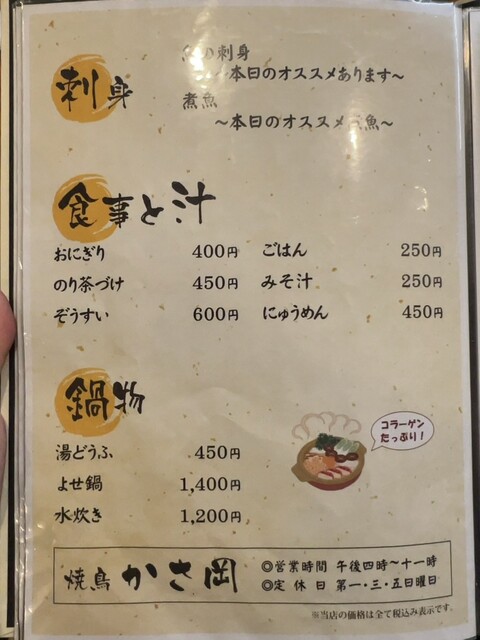 刺身
の刺身
～本日のオススメあります～
煮魚
～本日のオススメ 魚～
食事と汁
おにぎり 400円 ごはん 250円
のり茶づけ 450円 みそ汁 250円
ぞうすい 600円 にゅうめん 450円
鍋物
湯どうふ 450円
よせ鍋 1,400円
水炊き 1,200円
コラーゲン
たっぷり！
焼鳥 かさ岡
◎営業時間 午後四時～十一時
◎定休日 第一・三・五日曜日
※当店の価格は全て税込み表示です。